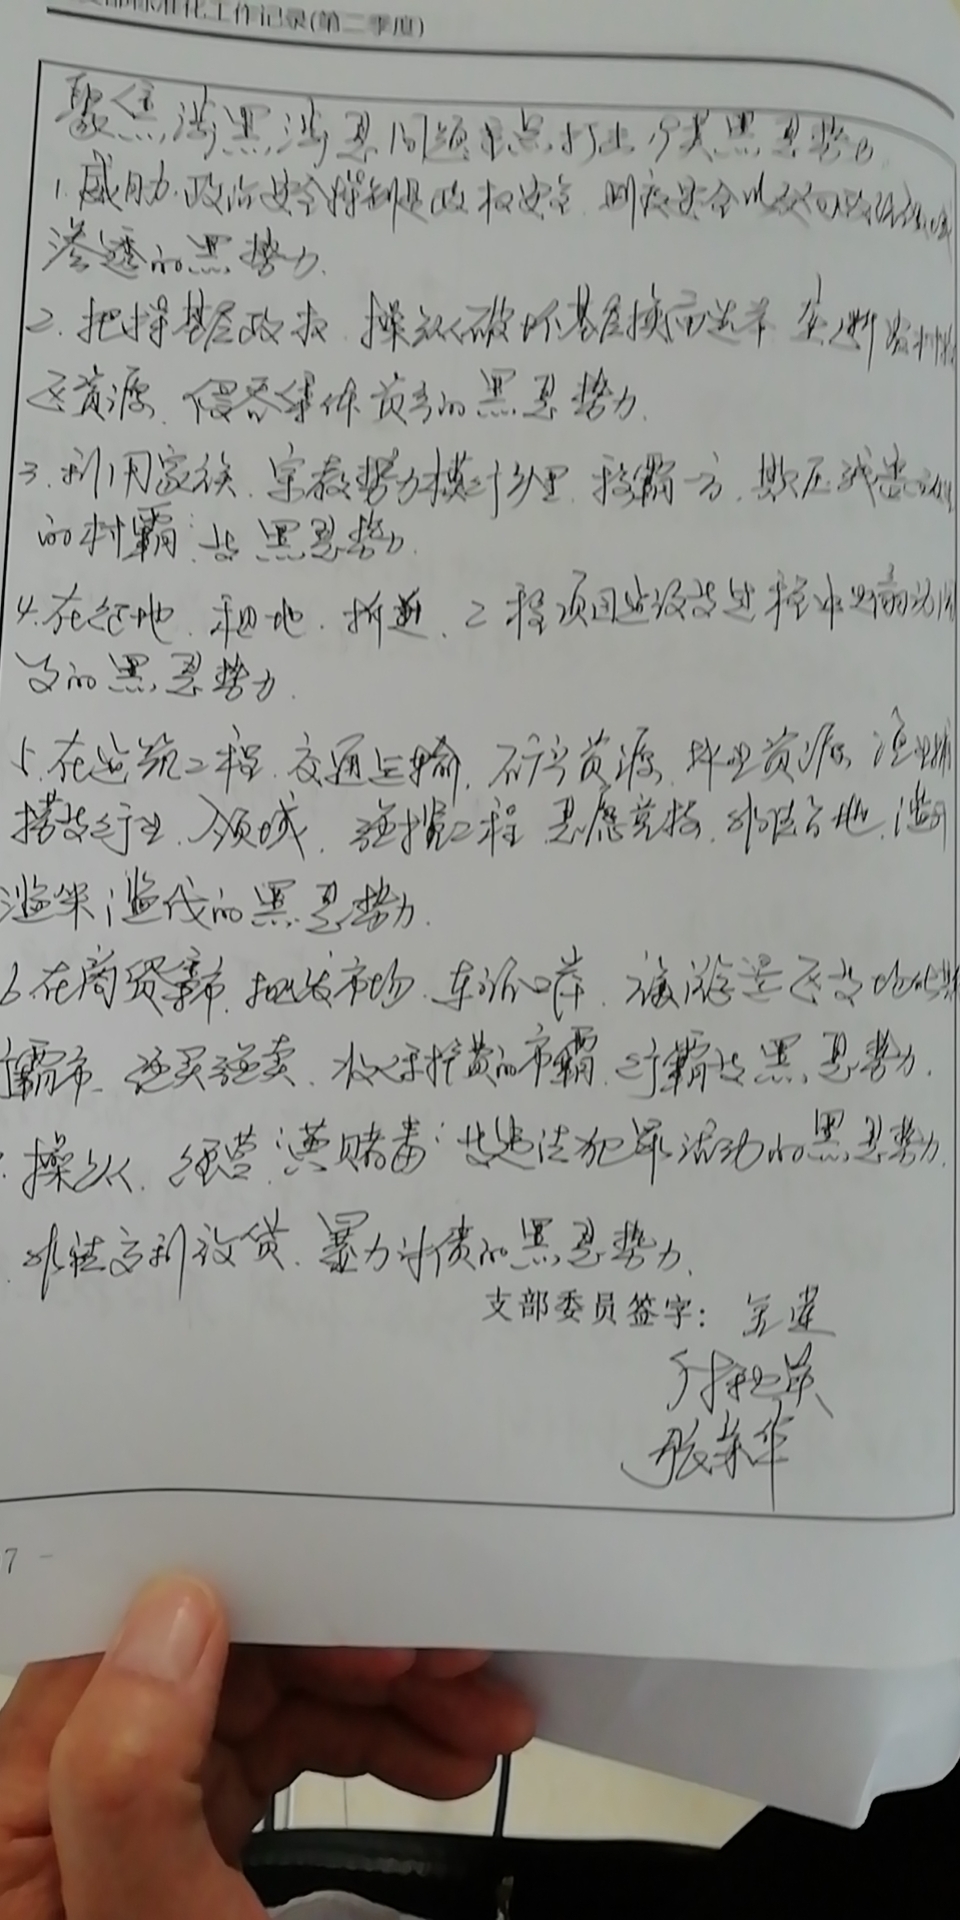 支部标准化工作记录(第二季度)
聚焦涉黑涉恶问题重点打击9类黑恶势力
1.威胁政治安全特别是政权安全 制度安全以及向政治领域
渗透的黑势力.
2.把持基层政权.操纵破坏基层换届选举 垄断农村
资源.侵吞集体资产的黑恶势力.
3.利用家族.宗教势力横行乡里.称霸一方.欺压残害
的村霸等黑恶势力.
4.在征地.租地.拆迁.工程项目建设等过程中煽动闹
的黑恶势力.
5.在建筑工程.交通运输.矿产资源.林业资源.渔业捕
捞等行业.领域.强揽工程 恶意竞标.非法占地.滥
滥采滥伐的黑恶势力.
6.在商贸集市.批发市场.车站码头.旅游景区等地
霸市.强买强卖.收保护费的市霸.行霸等黑恶势力.
操纵.经营"黄赌毒"等违法犯罪活动的黑恶势力.
非法高利放贷.暴力讨债的黑恶势力.
支部委员签字:
7 -